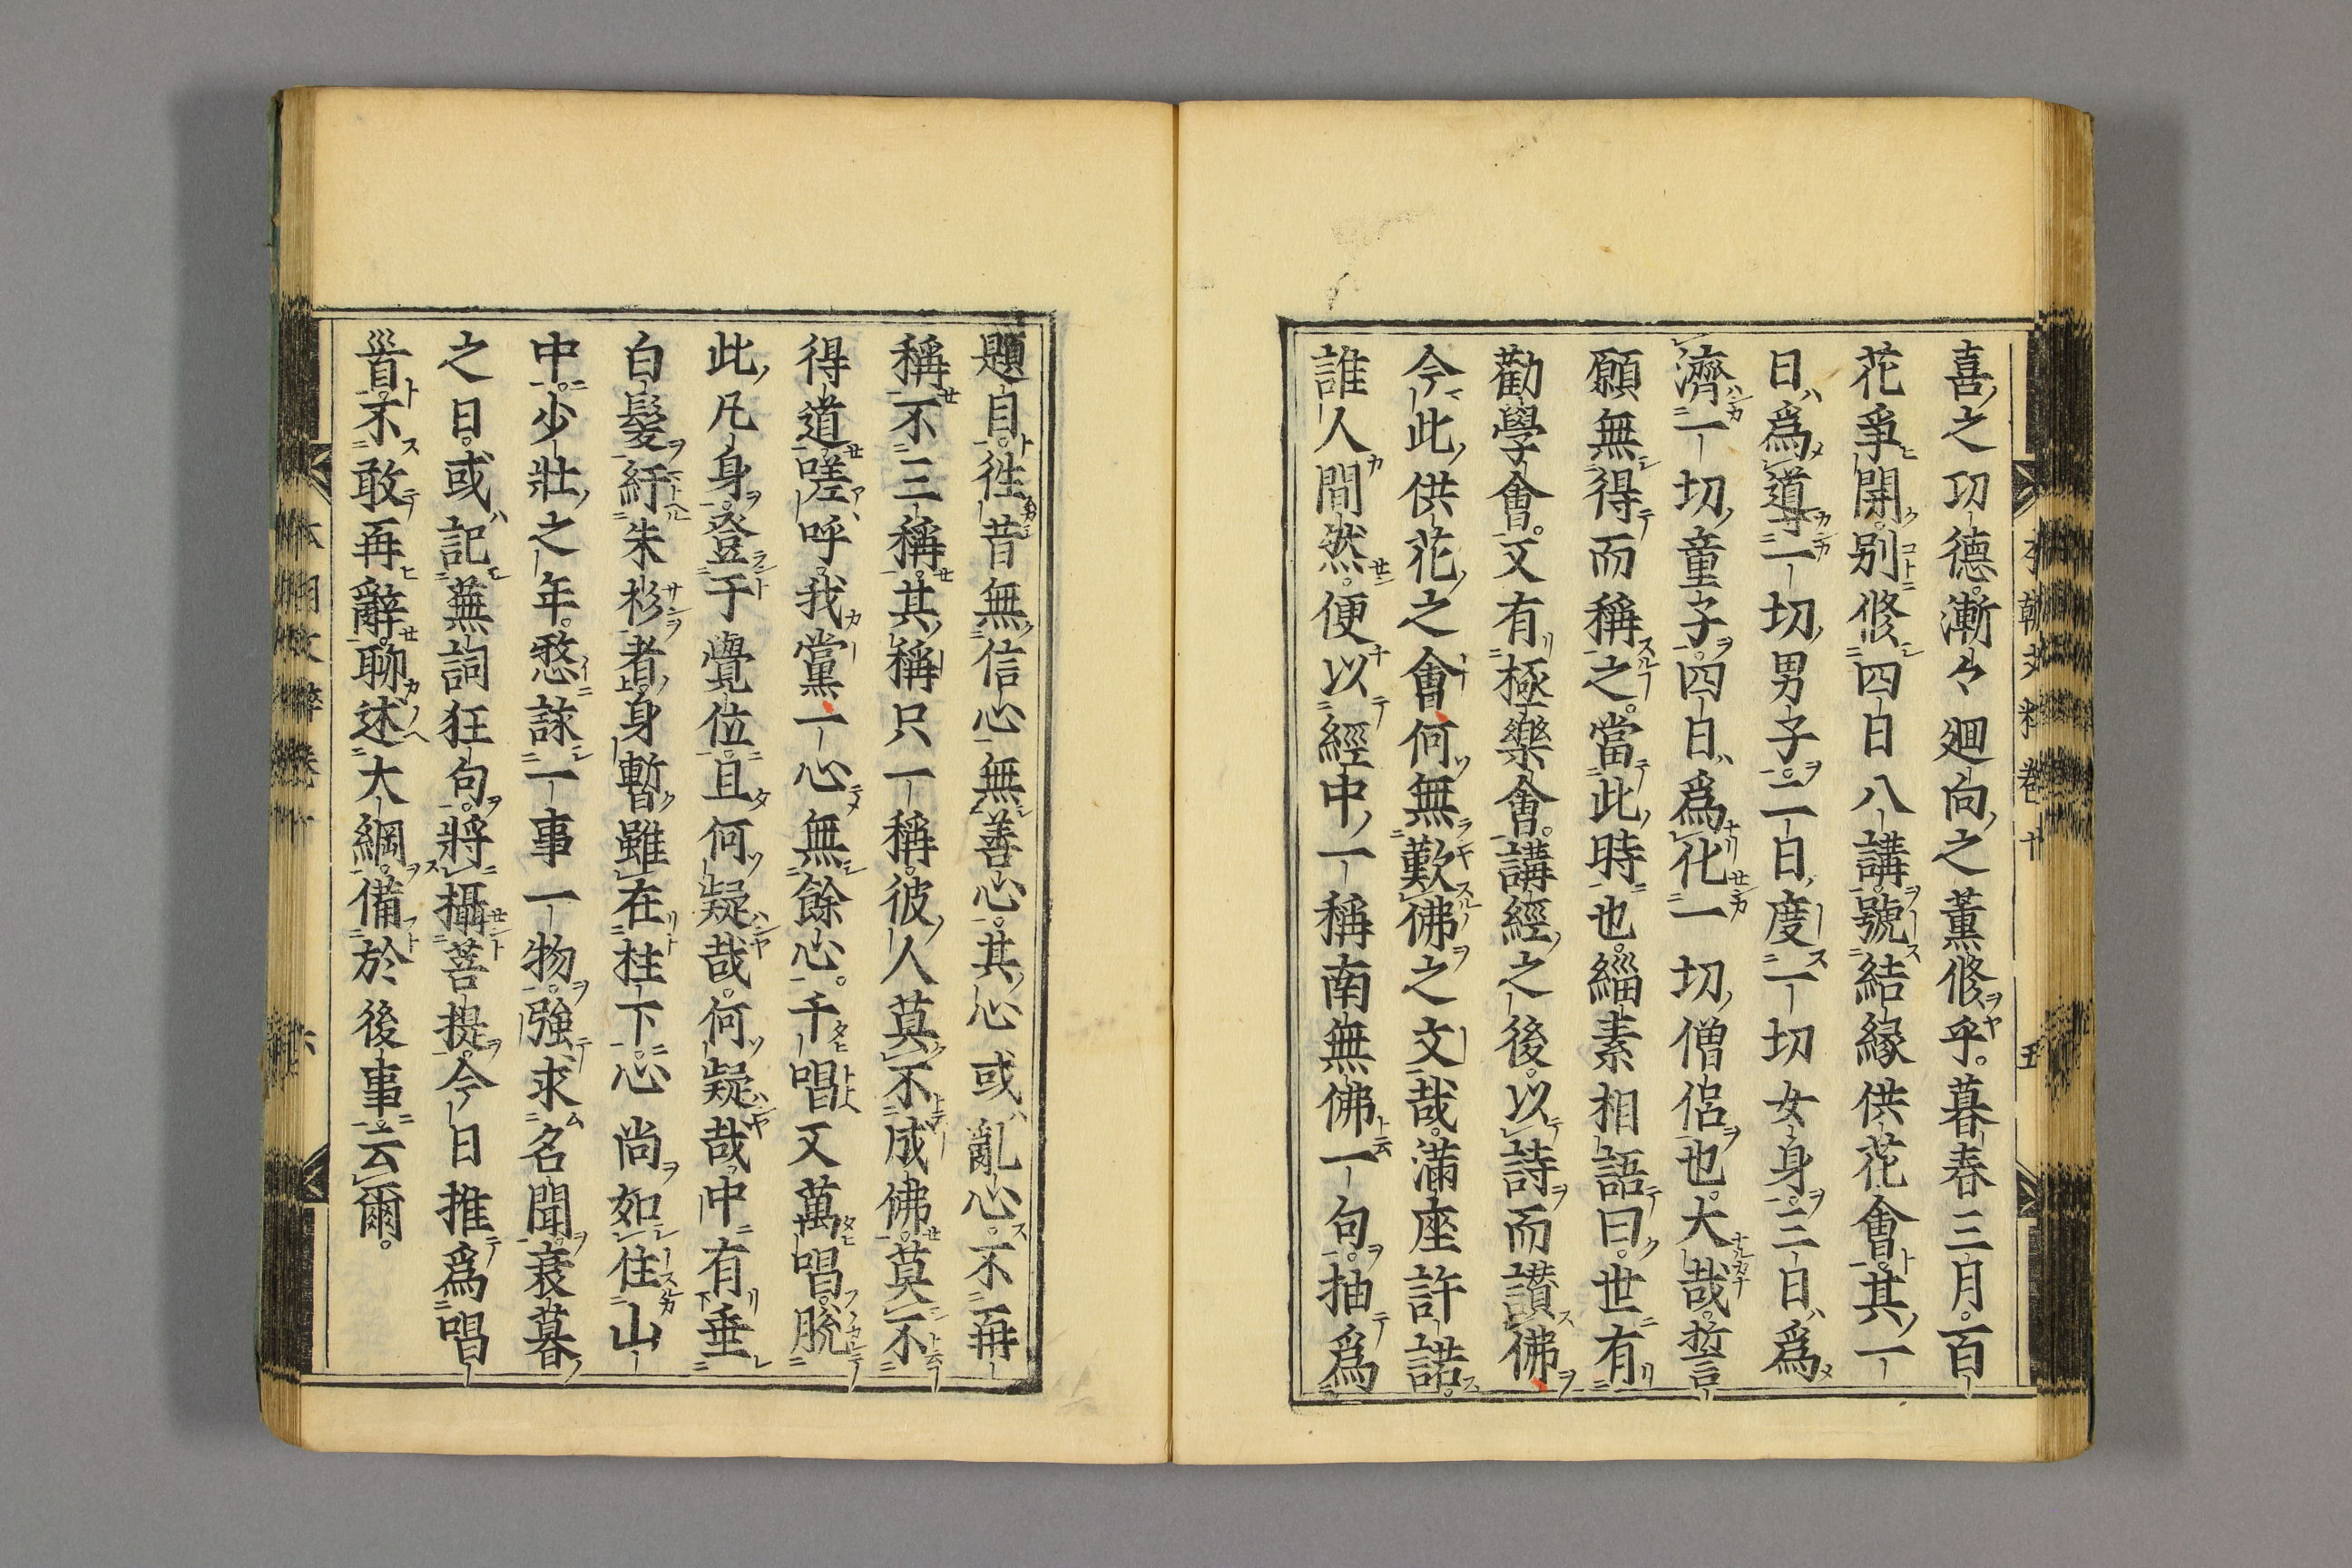 喜之功德。漸々廻向之薫修乎。暮春三月。百
花爭開。別修四日八講。號結縁供花會。其一
日爲導一切男子。二日度一切女身。三日爲
濟一切童子。四日爲化一切僧侶也。大哉誓
願無得而稱之。當此時也。緇素相語曰。世有
勸學會。又有極樂會。講經之後。以詩而讃佛
今此供花之會何無歎佛之文哉。滿座許諾。
誰人間然。便以經中一稱南無佛一句。抽爲
題目。徃昔無信心無善心。其心或亂心。不再
稱不三稱。其稱只一稱。彼人莫不成佛。莫不
得道。嗟呼。我黨一心無餘心。千唱又萬唱。脫
此凡身。登于覺位。且何疑哉。何疑哉。中有垂
白髮紆朱衫者。身暫雖在柱下。心尚如住山
中。少壯之年。愁詠一事一物。強求名聞。衰暮
之日。或記蕪詞狂句。將攝菩提。今日推爲唱
首。不敢再辭。聊述大綱。備於後事云爾。
本朝文粹卷十
五